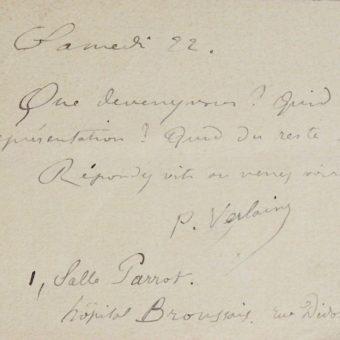 Samedi 22.
Que devenez vous ? Quid
représentation ? Quid du reste
Répondez vite ou venez voir
P. Verlaine
1, Salle Parrot.
hôpital Broussais. rue Didot